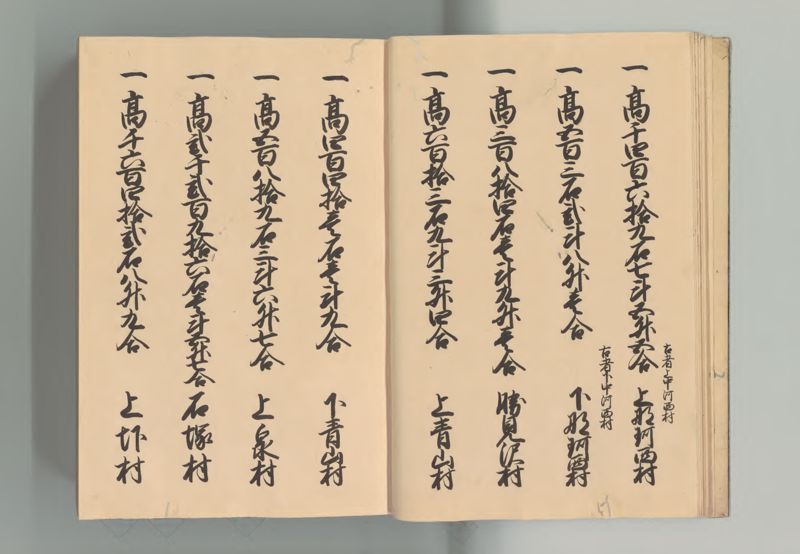 一 高千四百六拾九石七斗五升五合 上那珂西村
古者上中河西村
一 高五百三石弐斗八升壱合 下那珂西村
古者下中河西村
一 高三百八拾四石壱斗九升壱合 勝見沢村
一 高六百拾三石九斗三升四合 上青山村
一 高四百四拾壱石壱斗九合 下青山村
一 高五百八拾九石三斗六升七合 上泉村
一 高弐千弐百九拾六石壱斗五升七合 石塚村
一 高千六百四拾弐石八升九合 上圷村